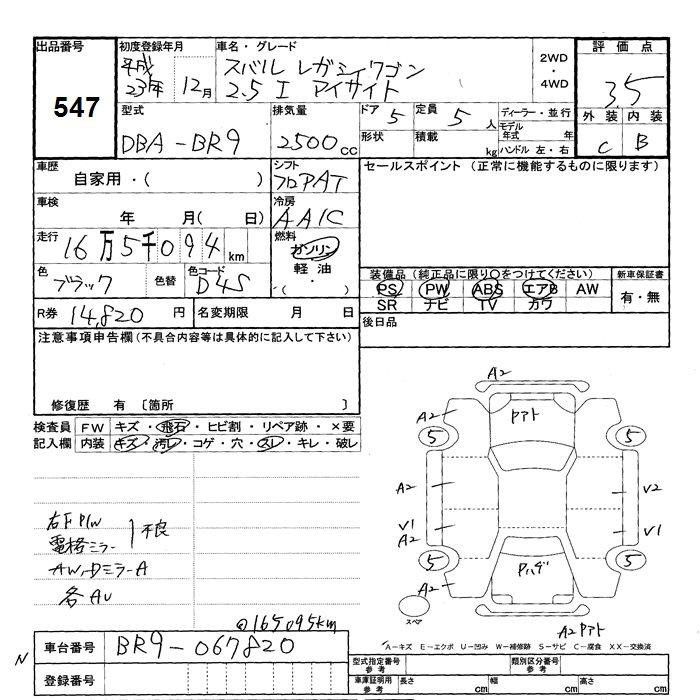 出品番号 初度登録年月 車名・グレード 2WD 評価点
547
平成 23年 12月 スバル レガシィワゴン ・ 3.5
2.5 I アイサイト 4WD
型式 排気量 ドア 5 定員 5人 ディーラー・並行 外装 内装
DBA-BR9 2500cc 形状 積載 kg モデル年式 年 C B
ハンドル 左・右
車歴 自家用・( ) シフト フロアAT セールスポイント (正常に機能するものに限ります)
車検 年 月( 日) 冷房 AAC
走行 16万5千094km 燃料 ガソリン
軽油
・( )
色 ブラック 色替 色コード D4S 装備品(純正品に限り○をつけてください) 新車保証書
PS PW ABS エアB AW 有・無
SR ナビ TV カワ
R券 14,820円 名変期限 月 日 後日品
注意事項申告欄(不具合内容等は具体的に記入して下さい)
修復歴 有 〔箇所 〕
検査員 FW キズ・飛石・ヒビ割・リペア跡・×要
記入欄 内装 キズ・汚レ・コゲ・穴・スレ・キレ・破レ
A2
A2 A2
5 5
A2 V2
V1 V1
A2
5 5
A2
スペア
A2
右F P/W 不良
電格ミラー
AW,DミラーA
各AU
@165095km
N 車台番号 BR9-067820
登録番号
A-キズ E-エクボ U-凹み W-補修跡 S-サビ C-腐食 XX-交換済
型式指定番号 参考 類別区分番号 参考
車庫証明用 参考 長さ cm 幅 cm 高さ cm